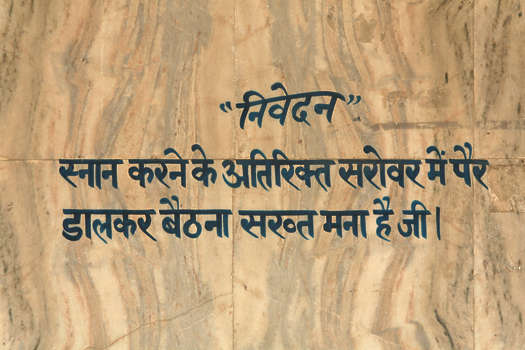 “निवेदन”
स्नान करने के अतिरिक्त सरोवर में पैर
डालकर बैठना सख्त मना है जी।